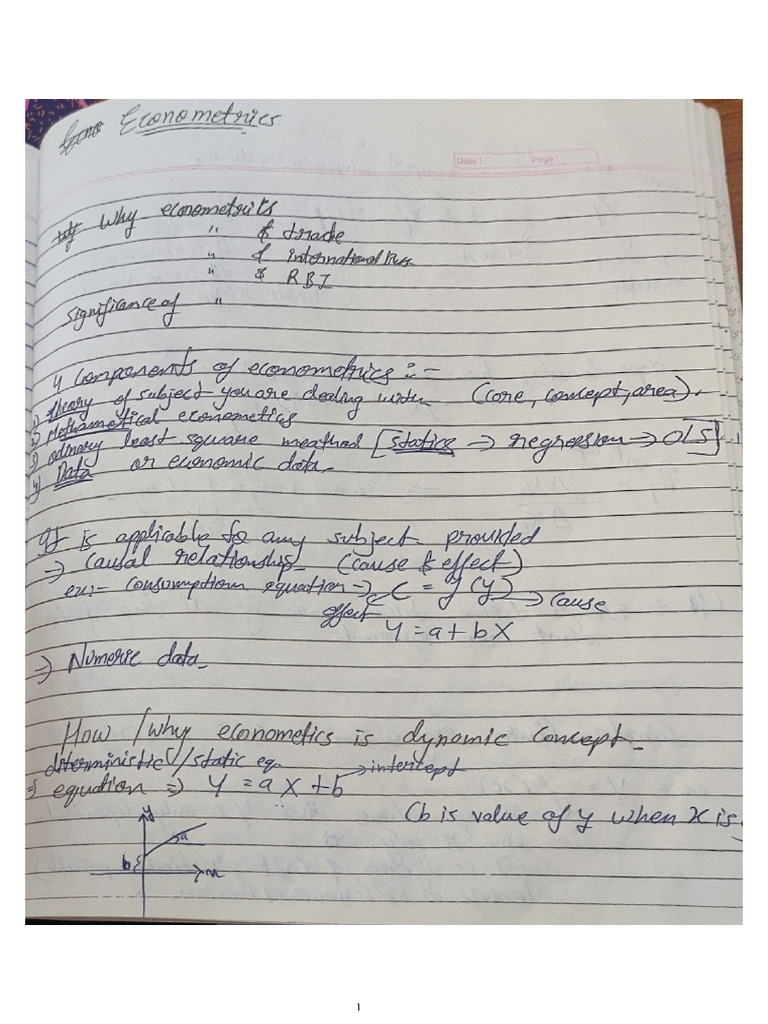 Econometrics
Date : Page :
Why econometrics
" & trade
" & International Bus.
" & RBI
Significance of "
4 components of econometrics :-
1) theory of subject you are dealing with (core, concept, area).
2) Mathametical econometics
3) ordinary least square meathod [statics → regression → OLS]
4) Data or economic data.
It is applicable for any subject provided
→ Causal relationship (cause & effect)
ex:- Consumption equation → C = f(y) → cause
effect
Y = a + b X
→ Numeric data.
How / why econometics is dynamic concept.
deterministic / static eq.
→ intercept
→ equation ⇒ Y = a X + b
(b is value of y when x is
y
a
b
x
1